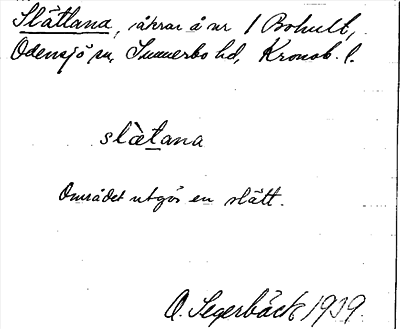 Slättana, åkrar å nr 1 Bohult,
Odensjö sn, Sunnerbo hd, Kronob. l.
slätana
Området utgör en slätt.
O. Segerbäck 1939.